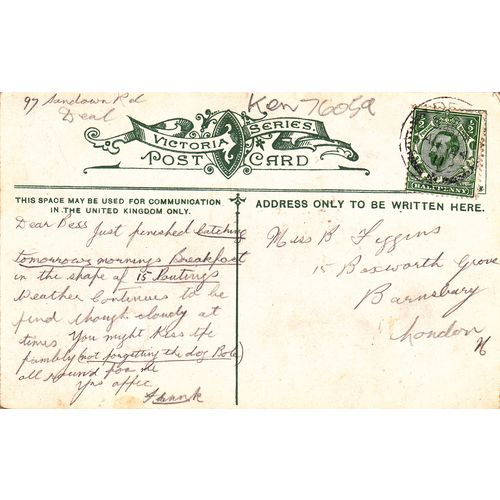 97 Sandown Rd
Deal
Ken 76059
VICTORIA SERIES
POST CARD
HALFPENNY
THIS SPACE MAY BE USED FOR COMMUNICATION
IN THE UNITED KINGDOM ONLY.
Dear Bess Just finished catching
tomorrows mornings Breakfast
in the shape of 15 Poutings
Weather Continues to be
find though cloudy at
times You might Kiss the
fambly (not forgetting the dog Bob)
all round for me
Yrs affec
Frank
ADDRESS ONLY TO BE WRITTEN HERE.
Miss B Figgins
15 Boxworth Grove
Barnsbury
London
N